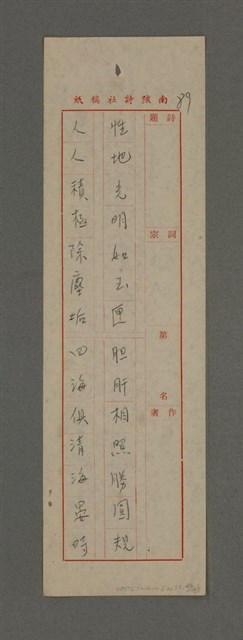 南陔詩社稿紙
89
詩題
詞宗
第 名
作者
性地光明如玉匣 胆肝相照勝圓規.
人人積極除塵垢 四海俱清海晏時